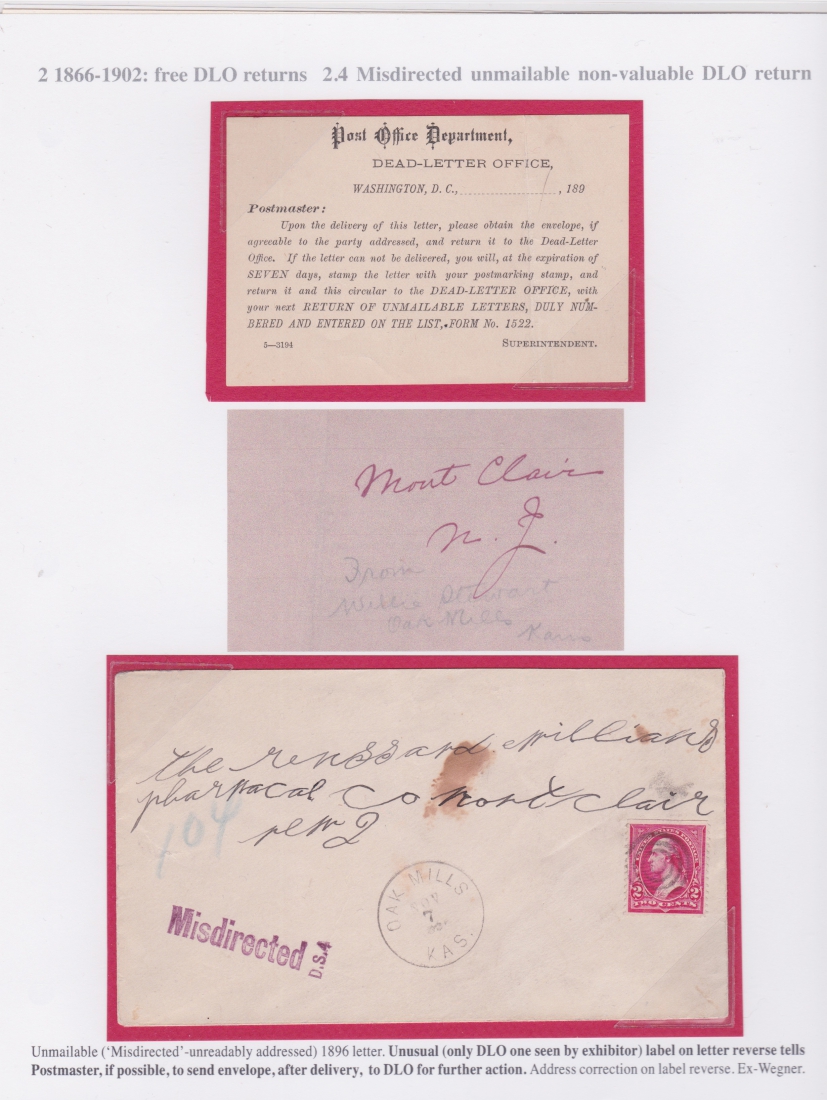 2 1866-1902: free DLO returns 2.4 Misdirected unmailable non-valuable DLO return
Post Office Department,
DEAD-LETTER OFFICE,
WASHINGTON, D. C., , 189
Postmaster:
Upon the delivery of this letter, please obtain the envelope, if
agreeable to the party addressed, and return it to the Dead-Letter
Office. If the letter can not be delivered, you will, at the expiration of
SEVEN days, stamp the letter with your postmarking stamp, and
return it and this circular to the DEAD-LETTER OFFICE, with
your next RETURN OF UNMAILABLE LETTERS, DULY NUM-
BERED AND ENTERED ON THE LIST, FORM No. 1522.
5—3194 SUPERINTENDENT.
Mont Clair
N. J.
From
Willie Stewart
Oak Mills
Kans
the
pharmacal Co mont Clair
104
OAK MILLS
NOV
7
KAS.
UNITED STATES POSTAGE
2 2
TWO CENTS
Misdirected
D.S.4
Unmailable ('Misdirected'-unreadably addressed) 1896 letter. Unusual (only DLO one seen by exhibitor) label on letter reverse tells
Postmaster, if possible, to send envelope, after delivery, to DLO for further action. Address correction on label reverse. Ex-Wegner.